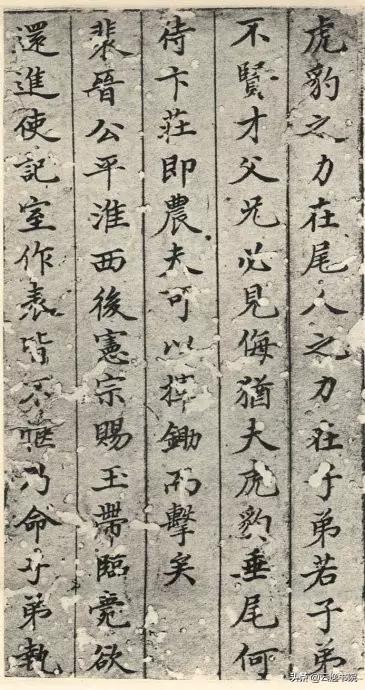 虎豹之力在尾人之力在子弟若子弟
不賢才父兄必見侮猶夫虎豹垂尾何
待卞莊即農夫可以揮鋤而擊矣
裴晉公平淮西後憲宗賜玉帶臨薨欲
還進使記室作表皆不愜乃命子弟執
头条